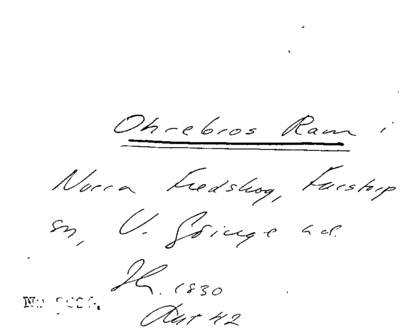 Ohrebros Ram i
Norra Fredskog, Farstorp
sn, V. Göinge hd.
1830
42